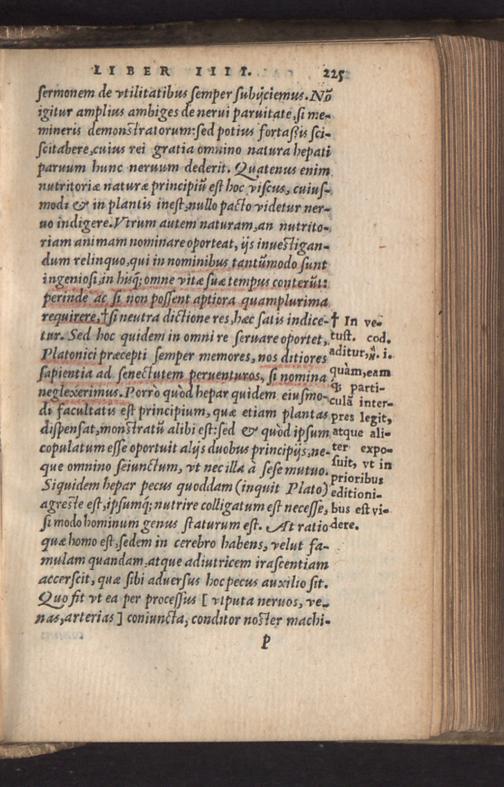 LIBER IIII. 225
sermonem de vtilitatibus semper subijciemus. Nō
igitur amplius ambiges de nerui paruitate, si me-
mineris demonstratorum: sed potius fortaßis sci-
scitabere, cuius rei gratia omnino natura hepati
paruum hunc neruum dederit. Quatenus enim
nutritoriæ naturæ principiū est hoc viscus, cuius-
modi & in plantis inest, nullo pacto videtur ner-
uo indigere. Vtrum autem naturam, an nutrito-
riam animam nominare oporteat, ijs inuestigan-
dum relinquo, qui in nominibus tantūmodo sunt
ingeniosi, in hisq; omne vitæ suæ tempus conterūt:
perinde ac si non possent aptiora quamplurima
requirere, † si neutra dictione res, hæc satis indice-
tur. Sed hoc quidem in omni re seruare oportet,
Platonici præcepti semper memores, nos ditiores
sapientia ad senectutem peruenturos, si nomina
neglexerimus. Porrò quòd hepar quidem eiusmo-
di facultatis est principium, quæ etiam plantas
dispensat, monstratū alibi est: sed & quòd ipsum
copulatum esse oportuit alijs duobus principijs, ne-
que omnino seiunctum, vt nec illa à sese mutuo.
Siquidem hepar pecus quoddam (inquit Plato)
agreste est, ipsumq; nutrire colligatum est necesse,
si modo hominum genus staturum est. At ratio
quæ homo est, sedem in cerebro habens, velut fa-
mulam quandam, atque adiutricem irascentiam
accerscit, quæ sibi aduersus hoc pecus auxilio sit.
Quo fit vt ea per processus [ vtputa neruos, ve-
nas, arterias ] coniuncta, conditor noster machi-
P
† In ve-
tust. cod.
aditur, . i.
quàm, eam
q; parti-
culā inter-
pres legit,
atque ali-
ter expo-
suit, vt in
prioribus
editioni-
bus est vi-
dere.